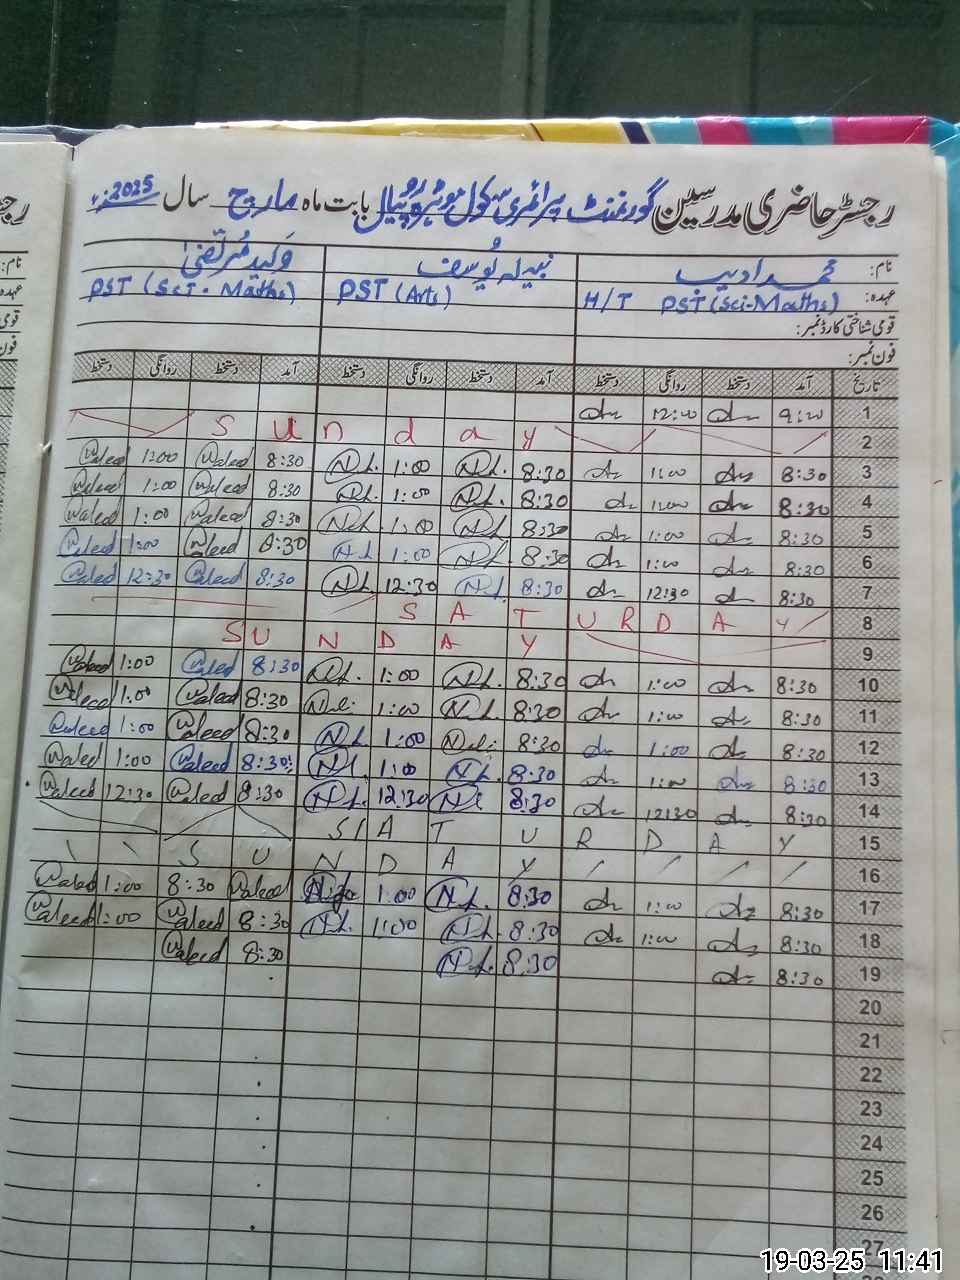 رجسٹر حاضری مدرسین گورنمنٹ پرائمری سکول بابت ماہ مارچ سال 2025ء
نام: محمد ادیب نبیلہ یوسف ولید مرتضیٰ
عہدہ: H/T PST (Sci-Maths) PST (Arts) PST (Sci. Maths)
قومی شناختی کارڈ نمبر:
فون نمبر:
تاریخ آمد دستخط روانگی دستخط آمد دستخط روانگی دستخط آمد دستخط روانگی دستخط
1 9:00 12:00
2 S u n d a y
3 8:30 1:00 8:30 N.L. 1:00 N.L. 8:30 Waleed 1:00 Waleed
4 8:30 1:00 8:30 N.L. 1:00 N.L. 8:30 Waleed 1:00 Waleed
5 8:30 1:00 8:30 N.L. 1:00 N.L. 8:30 Waleed 1:00 Waleed
6 8:30 1:00 8:30 N.L. 1:00 N.L. 8:30 Waleed 1:00 Waleed
7 8:30 12:30 8:30 N.L. 12:30 N.L. 8:30 Waleed 12:30 Waleed
8 S A T U R D A Y
9 S U N D A Y
10 8:30 1:00 8:30 N.L. 1:00 N.L. 8:30 Waleed 1:00 Waleed
11 8:30 1:00 8:30 N.L. 1:00 N.L. 8:30 Waleed 1:00 Waleed
12 8:30 1:00 8:30 N.L. 1:00 N.L. 8:30 Waleed 1:00 Waleed
13 8:30 1:00 8:30 N.L. 1:00 N.L. 8:30 Waleed 1:00 Waleed
14 8:30 12:30 8:30 N.L. 12:30 N.L. 8:30 Waleed 12:30 Waleed
15 S A T U R D A Y
16 S U N D A Y
17 8:30 1:00 8:30 N.L. 1:00 Waleed 8:30 1:00 Waleed
18 8:30 1:00 8:30 N.L. 1:00 N.L. 8:30 Waleed 1:00 Waleed
19 8:30 8:30 N.L. 8:30 Waleed
20
21
22
23
24
25
26
27
19-03-25 11:41